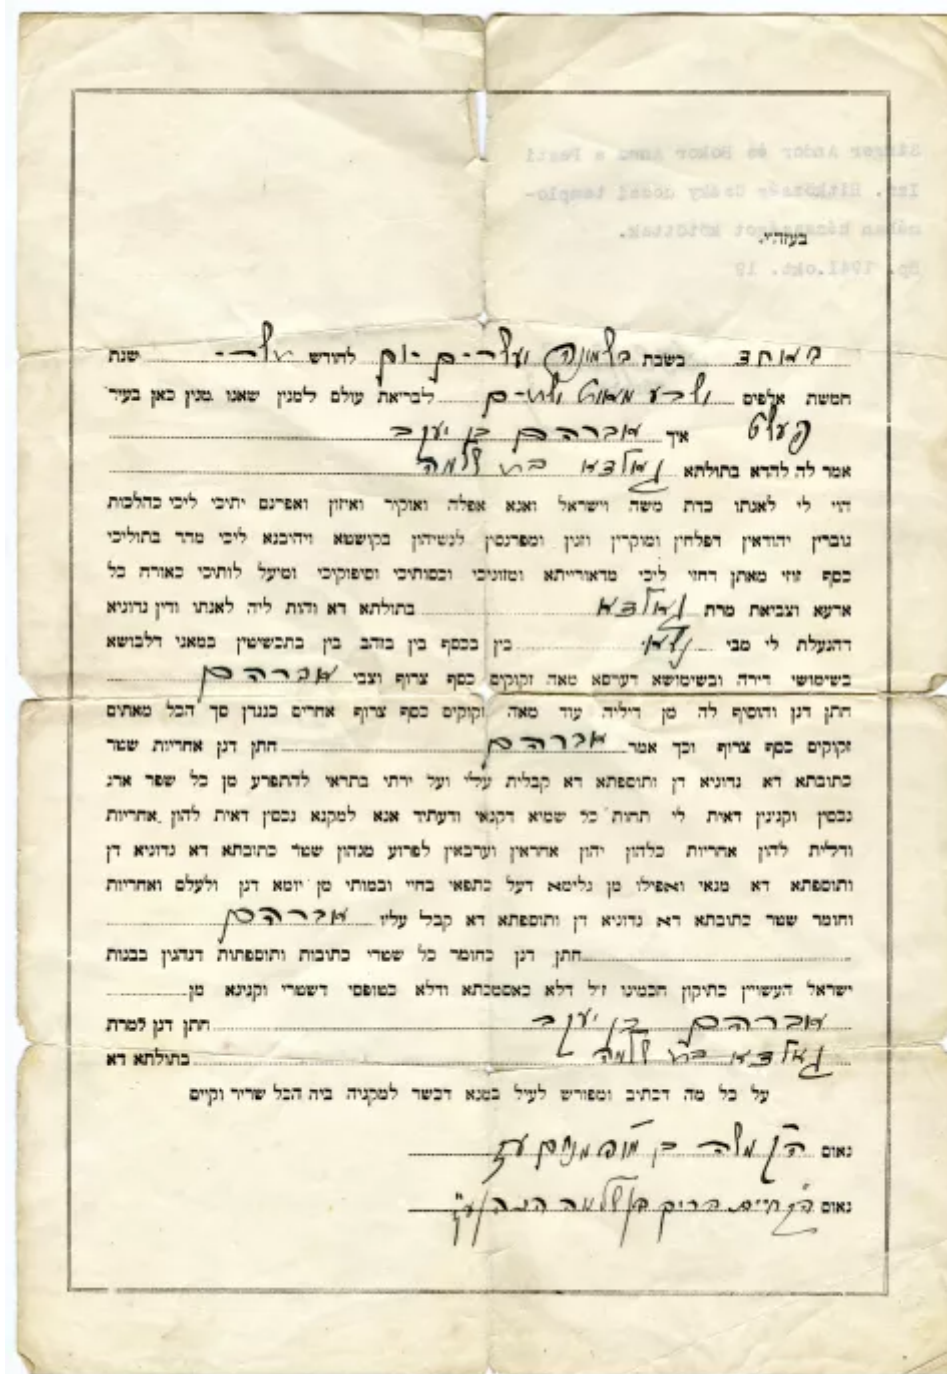 בעזה״י.
באחד בשבת בשמונה ועשרים יום לחודש תשרי שנת
חמשת אלפים ושבע מאות ושתים לבריאת עולם למנין שאנו מנין כאן בעיר
פעסט איך אברהם בן יעקב
אמר לה להדא בתולתא גאלדא בת שלמה
הוי לי לאנתו כדת משה וישראל ואנא אפלה ואוקיר ואיזון ואפרנס יתיכי ליכי כהלכות
גוברין יהודאין דפלחין ומוקרין וזנין ומפרנסין לנשיהון בקושטא ויהיבנא ליכי מהר בתוליכי
כסף זוזי מאתן דחזי ליכי מדאורייתא ומזוניכי וכסותיכי וסיפוקיכי ומיעל לותיכי כאורח כל
ארעא וצביאת מרת גאלדא בתולתא דא והות ליה לאנתו ודין נדוניא
דהנעלת לי מבי בין בכסף בין בזהב בין בתכשיטין במאני דלבושא
בשימושי דירה ובשימושא דערסא מאה זקוקים כסף צרוף וצבי אברהם
חתן דנן והוסיף לה מן דיליה עוד מאה זקוקים כסף צרוף אחרים כנגדן סך הכל מאתים
זקוקים כסף צרוף וכך אמר אברהם חתן דנן אחריות שטר
כתובתא דא נדוניא דן ותוספתא דא קבלית עלי ועל ירתי בתראי להתפרע מן כל שפר ארג
נכסין וקנינין דאית לי תחות כל שמיא דקנאי ודעתיד אנא למקנא נכסין דאית להון אחריות
ודלית להון אחריות כלהון יהון אחראין וערבאין לפרוע מנהון שטר כתובתא דא נדוניא דן
ותוספתא דא מנאי ואפילו מן גלימא דעל כתפאי בחיי ובמותי מן יומא דנן ולעלם ואחריות
וחומר שטר כתובתא דא נדוניא דן ותוספתא דא קבל עליו אברהם
חתן דנן כחומר כל שטרי כתובות ותוספתות דנהגין בבנות
ישראל העשויין כתיקון חכמינו ז״ל דלא כאסמכתא ודלא כטופסי דשטרי וקנינא מן
אברהם בן יעקב חתן דנן למרת
גאלדא בת שלמה בתולתא דא
על כל מה דכתיב ומפורש לעיל במנא דכשר למקניה ביה הכל שריר וקיים
נאום משה בן מנחם
נאום חיים בן שלמה
Singer Andor és Bokor Anna a Pesti
Izr. Hitközség Csáky uccai templo-
mában házasságot kötöttek.
Bp. 1941.okt. 19